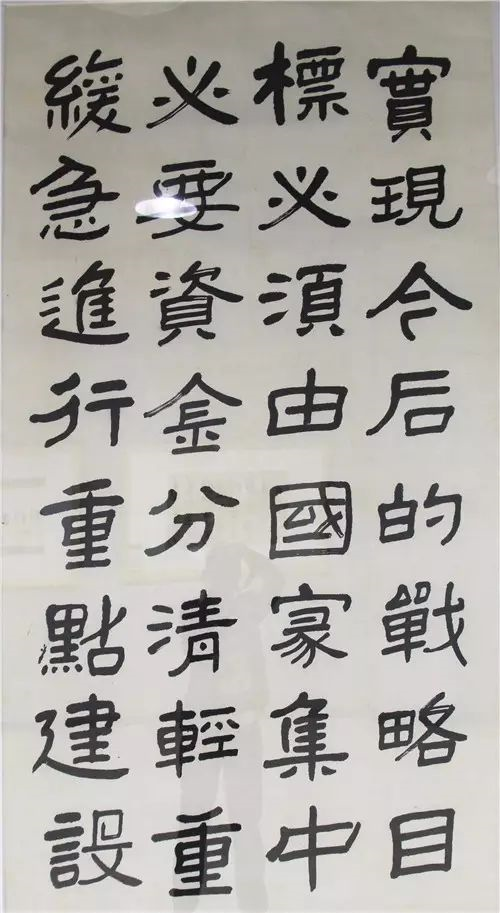 實現今后的戰略目
標必須由國家集中
必要資金分清輕重
緩急進行重點建設